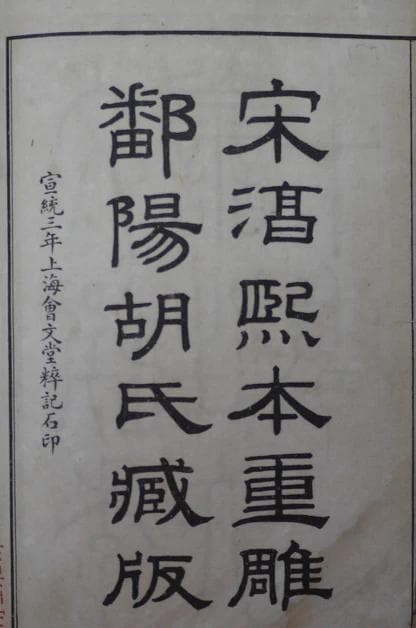 宋淳熙本重雕
鄱陽胡氏臧版
宣統三年上海會文堂粹記石印